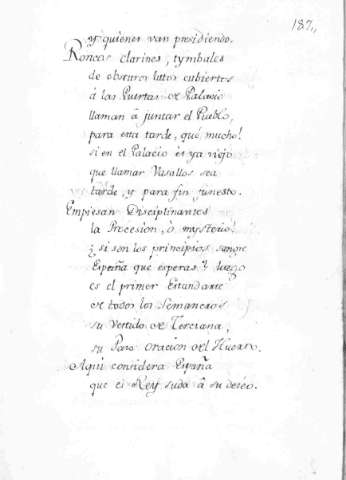 187,,
y quienes van presidiendo.
Roncos clarines, tymbales
de obscuros lutos cubiertos
á las Puertas de Palacio
llaman â juntar el Pueblo,
para esta tarde, qué mucho!
si en el Palacio es ya viejo
que llamar Vasallos sea
tarde, y para fin funesto.
Empiesan Disciplinantes
la Procesion, ò mysterio!
¿ si son los principios sangre
España que esperas? luego
es el primer Estandarte
de todos los Semaneros
su Vestido de Terciana,
su Paso Oracion del Huerto.
Aqui considera España
que el Rey suda â su deseo.